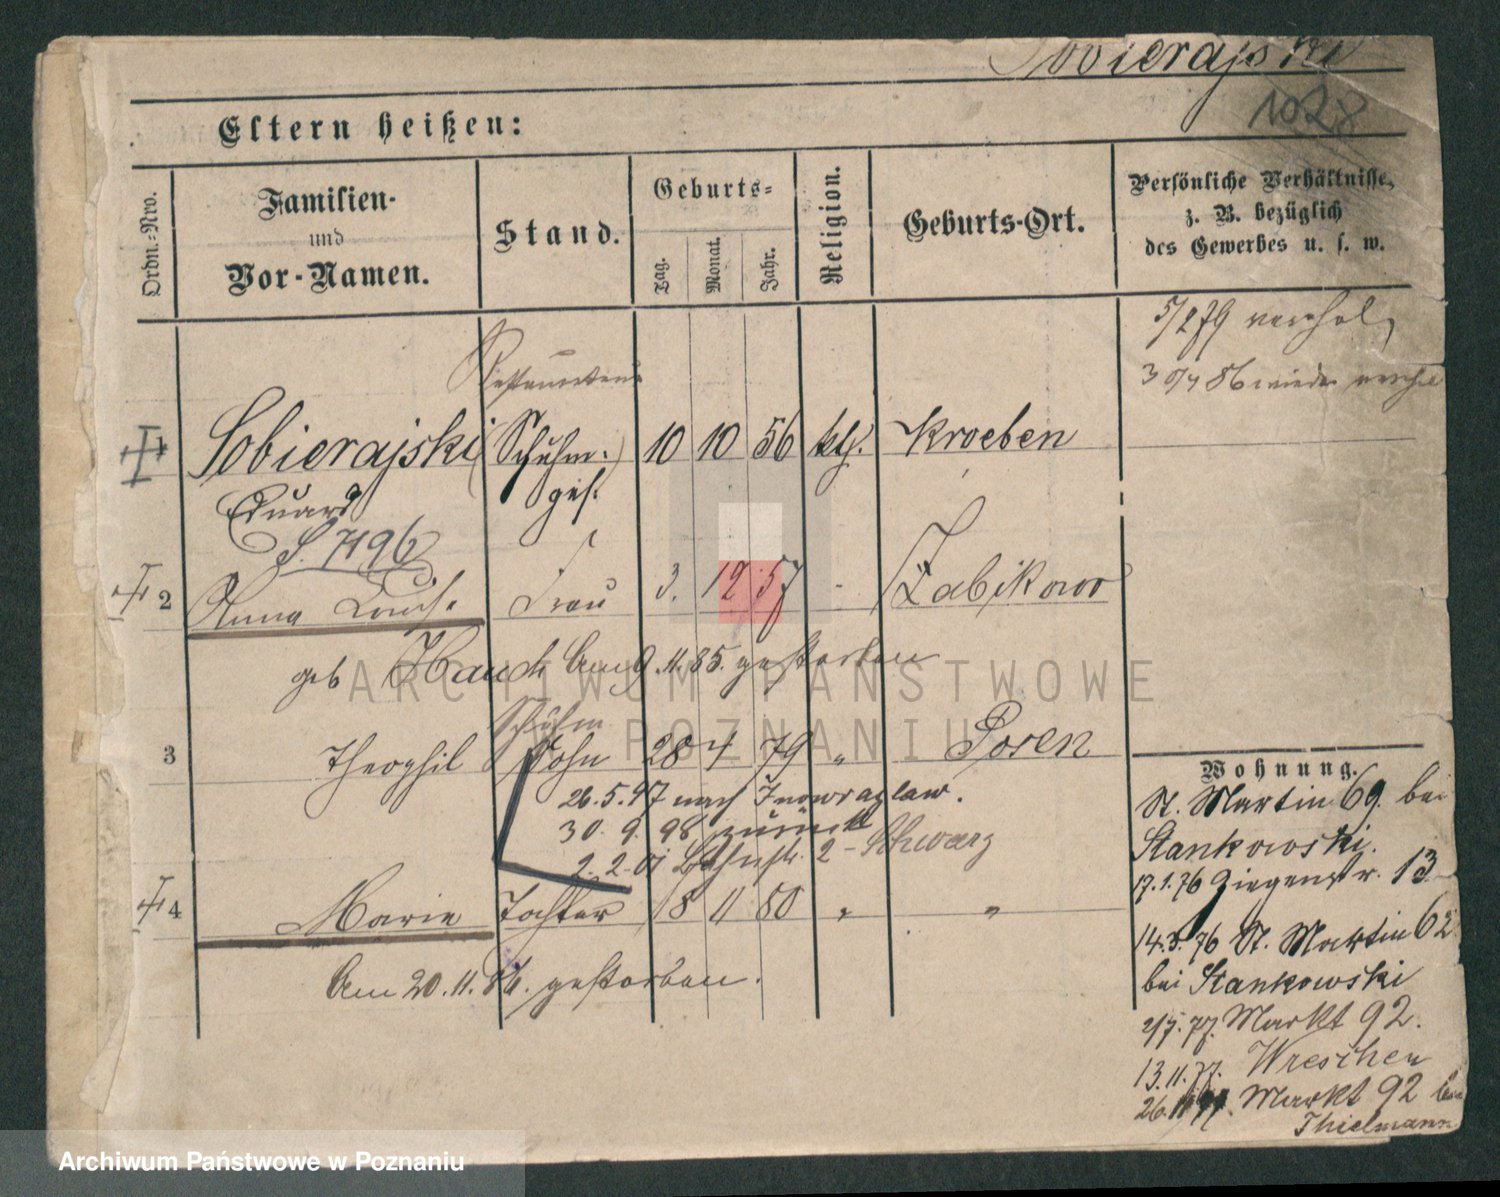 Sobierajski
1028
Eltern heißen:
Ordn.-Nro.
Familien-
und
Vor-Namen.
Stand.
Geburts-
Tag.
Monat.
Jahr.
Religion.
Geburts-Ort.
Persönliche Verhältnisse,
z. B. bezüglich
des Gewerbes u. s. w.
5/2 79 vereh
30/4 86 wieder vereh
Restaurateur
Sobierajski (Schuhm.) 10 10 56 kth. Kroeben
Eduard ges.
S. 7196
2 Anna Louise Frau 3. 12 57 - Zabikowo
geb Hauch Am 9.11.85. gestorben
Schuhm
3 Theophil Sohn 28 4 79 " Posen
26.5.97 nach Inowrazlaw.
30.9.98 zurück
2.2.01 2 - Schwarz
4 Marie Tochter 8 11 80 " "
Am 20.11.86. gestorben.
Wohnung.
St. Martin 69. bei
Stankowski.
17.1.76 Ziegenstr. 13
14.3.76 St. Martin 62
bei Stankowski
2/7.77. Markt 92.
13.11.77. Wreschen
26.11.77. Markt 92 bei
Thielmann
ARCHIWUM PAŃSTWOWE
W POZNANIU
Archiwum Państwowe w Poznaniu